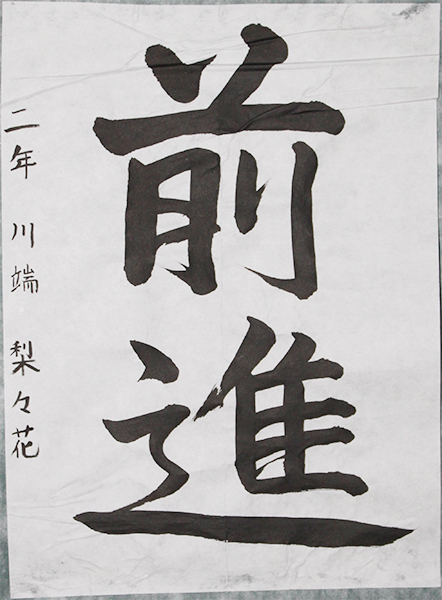 前進
二年 川端 梨々花